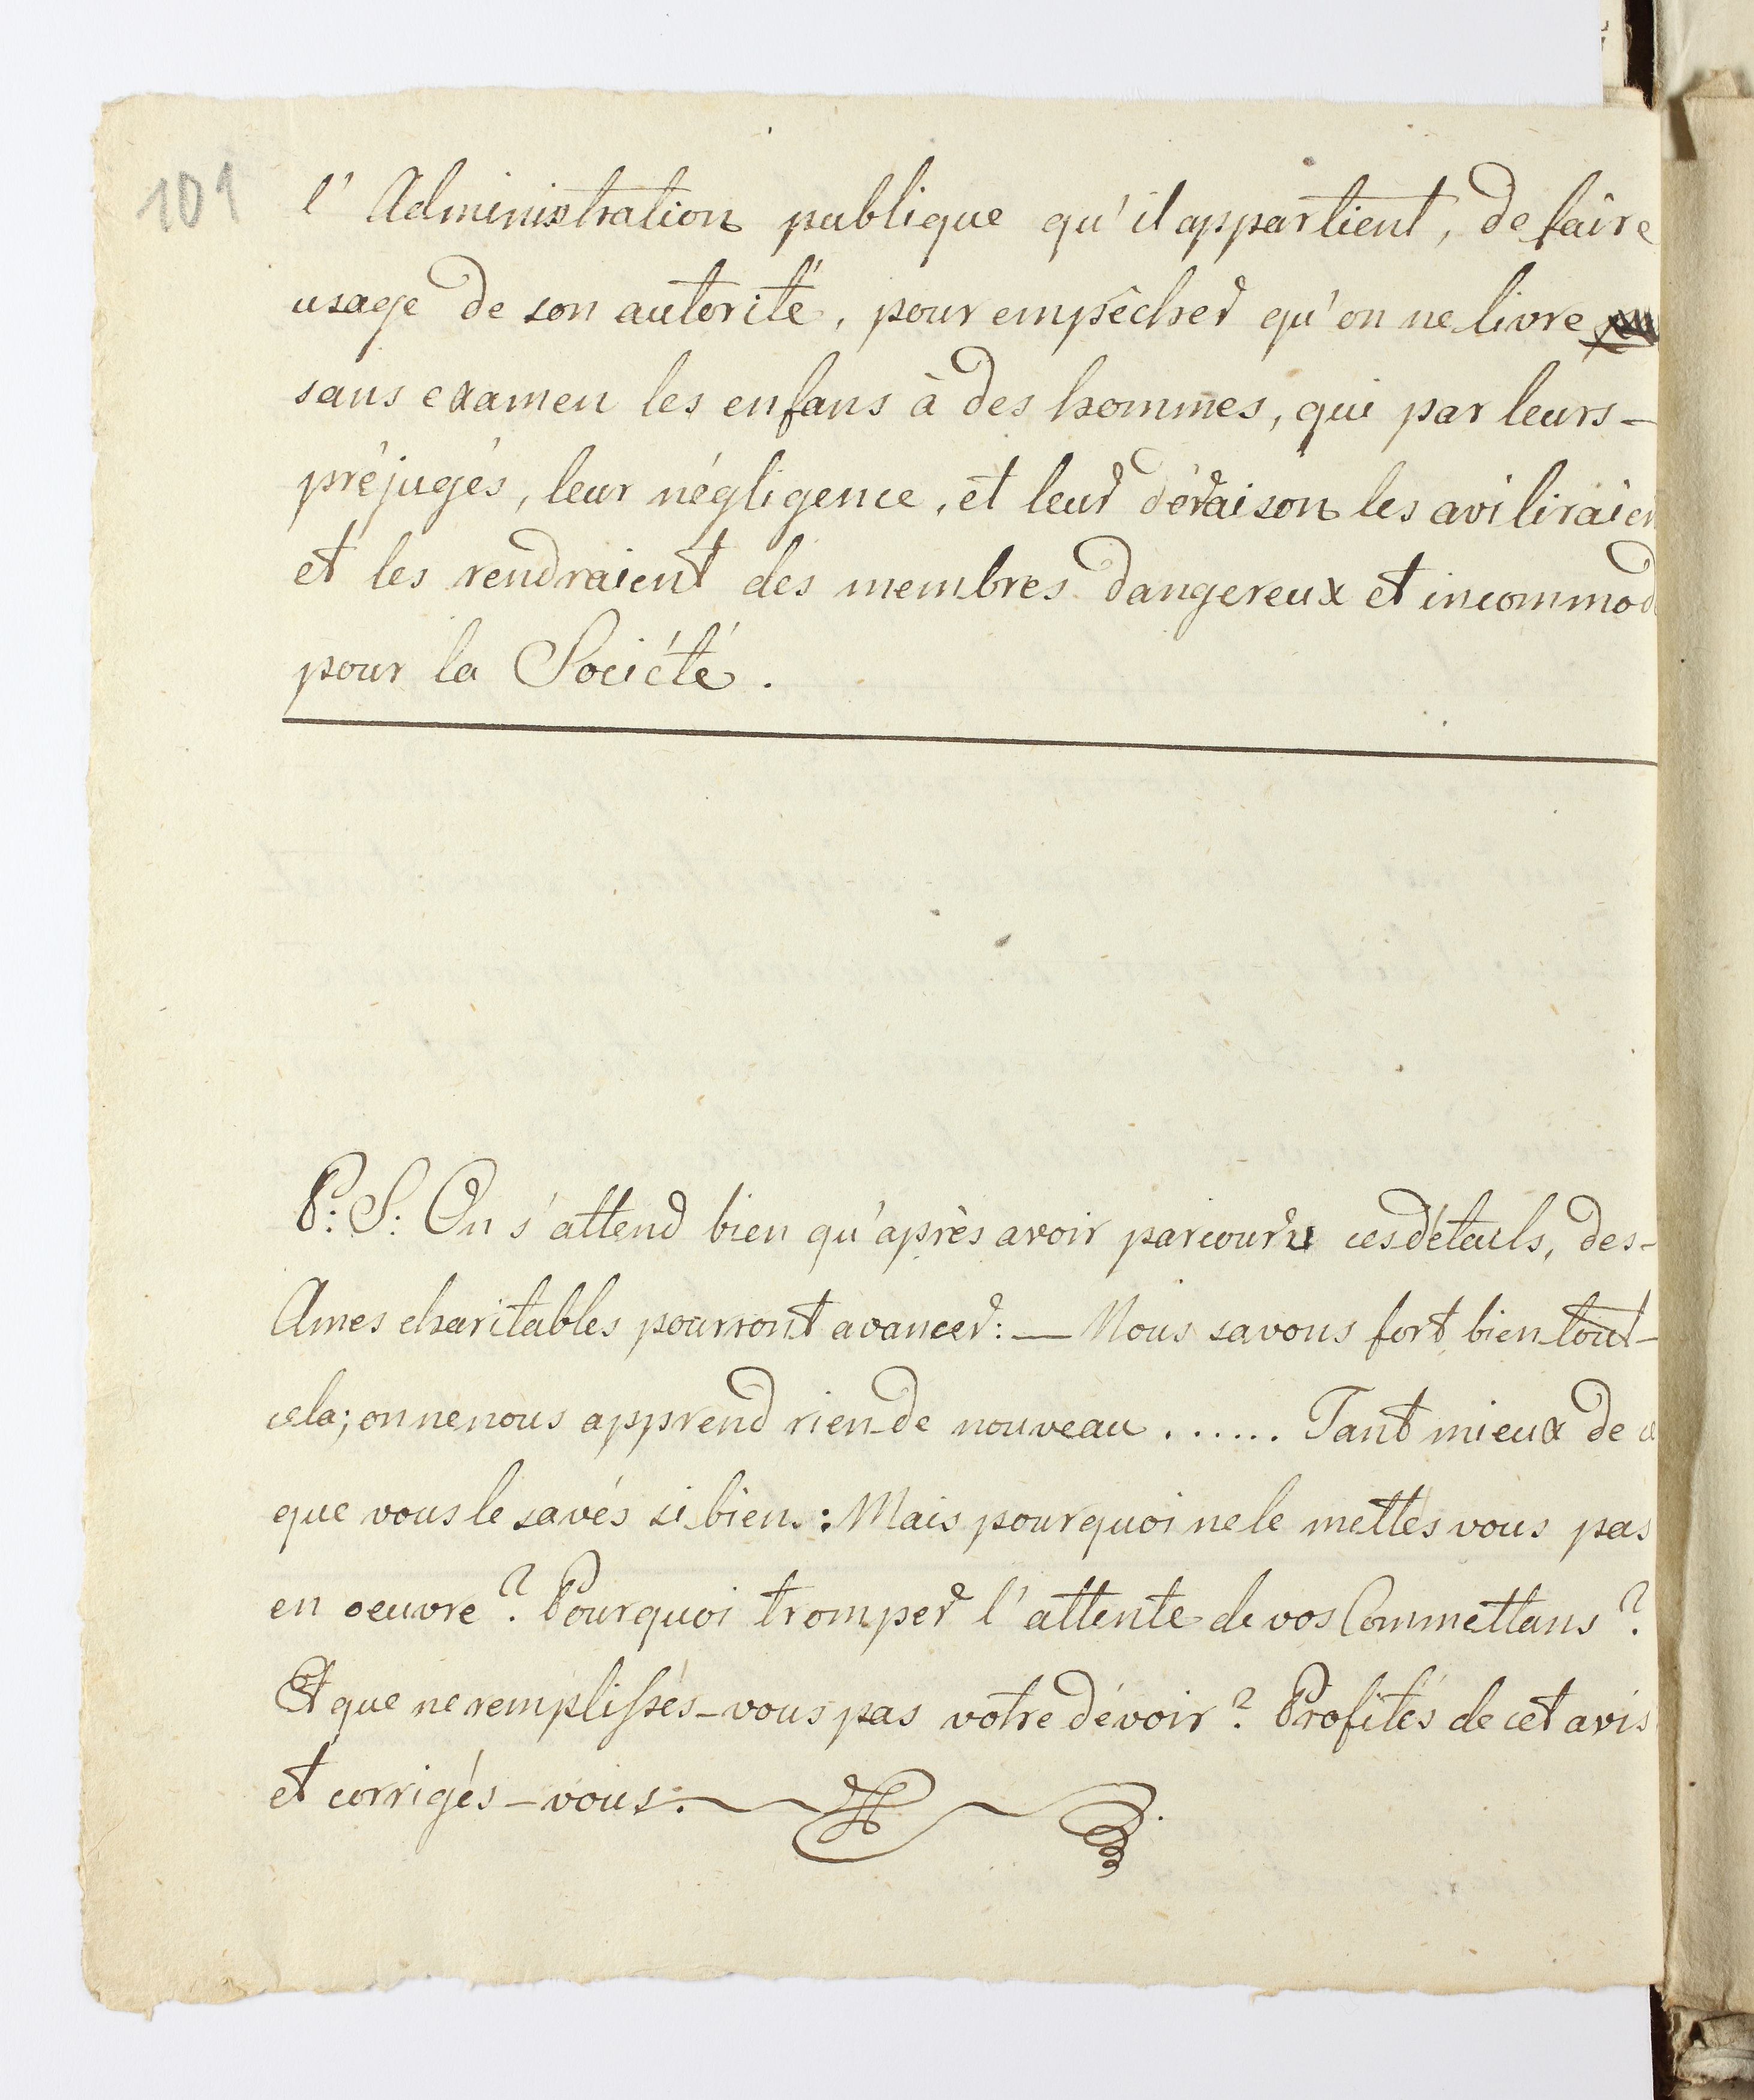 101
l' Administration publique qu'il appartient, de faire
usage de son autorité, pour empêcher qu'on ne livre
sans examen les enfans à des hommes, qui par leurs-
préjugés, leur négligence, et leur déraison les aviliraien
et les rendraient des membres dangereux et incommod
pour la Société.
P: S: On s'attend bien qu'après avoir parcouru ces détails, des-
Ames charitables pourront avancer: — Nous savons fort bien tout-
cela; on ne nous apprend rien de nouveau ...... Tant mieux de c
que vous le savés si bien: Mais pourquoi ne le mettés vous pas
en oeuvre? Pourquoi tromper l'attente de vos Commettans?
Et que ne remplissés-vous pas votre dévoir? Profités de cet avis
et corrigés-vous.